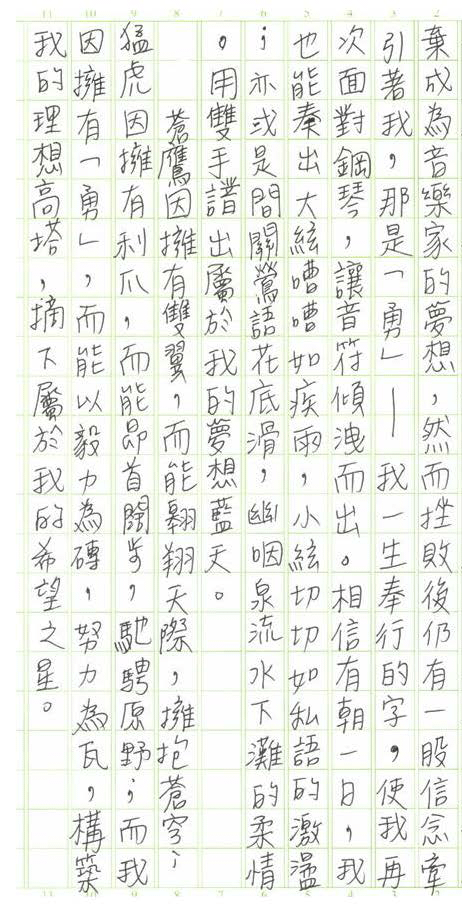 棄成為音樂家的夢想，然而挫敗後仍有一股信念牽
引著我，那是「勇」——我一生奉行的字，使我再
次面對鋼琴，讓音符傾洩而出。相信有朝一日，我
也能奏出大絃嘈嘈如疾雨，小絃切切如私語的激盪
；亦或是間關鶯語花底滑，幽咽泉流水下灘的柔情
。用雙手譜出屬於我的夢想藍天。
蒼鷹因擁有雙翼，而能翱翔天際，擁抱蒼穹；
猛虎因擁有利爪，而能昂首闊步，馳騁原野；而我
因擁有「勇」，而能以毅力為磚，努力為瓦，構築
我的理想高塔，摘下屬於我的希望之星。